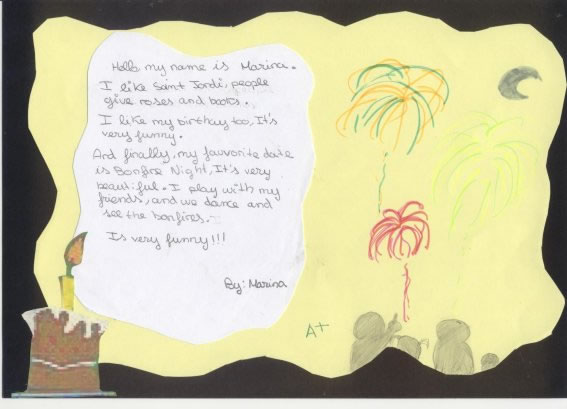 Hello my name is Marina.
I like Saint Jordi, people
give roses and books.
I like my birthay too, It's
very funny.
And finally, my favorite date
is Bonfire Night, It's very
beautiful. I play with my
friends, and we dance and
see the bonfires.
Is very funny!!!
By: Marina
A+